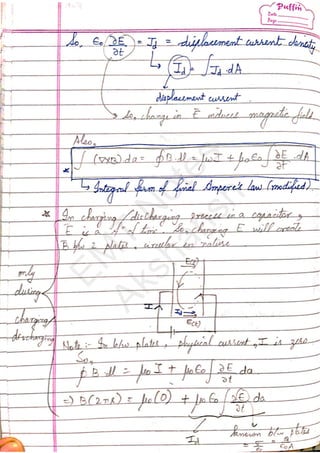 Puffin
Date
Page
So, ε₀ ∂E/∂t = Jd = displacement current density
↳ Id = ∫ Jd . dA
displacement current
→ So, change in E induces magnetic field.
Also,
* ∫ (∇×B) da = ∮ B . dl = μ₀I + μ₀ε₀ ∫ ∂E/∂t . dA
↳ Integral form of final Ampere's law (modified).
* In charging / discharging process in a capacitor,
E is a fⁿ of time. So, changing E will create
B b/w 2 plates, circular in nature
only during charging/discharging
E(t)
I
Id
E(t)
Note :- In b/w plates, physical current, I is zero
So,
∮ B . dl = μ₀ I + μ₀ε₀ ∫ ∂E/∂t . da
⇒ B(2πr) = μ₀(0) + μ₀ε₀ ∫ (∂E/∂t) da
Id
known b/w plates
= σ/ε₀ = Q/ε₀A